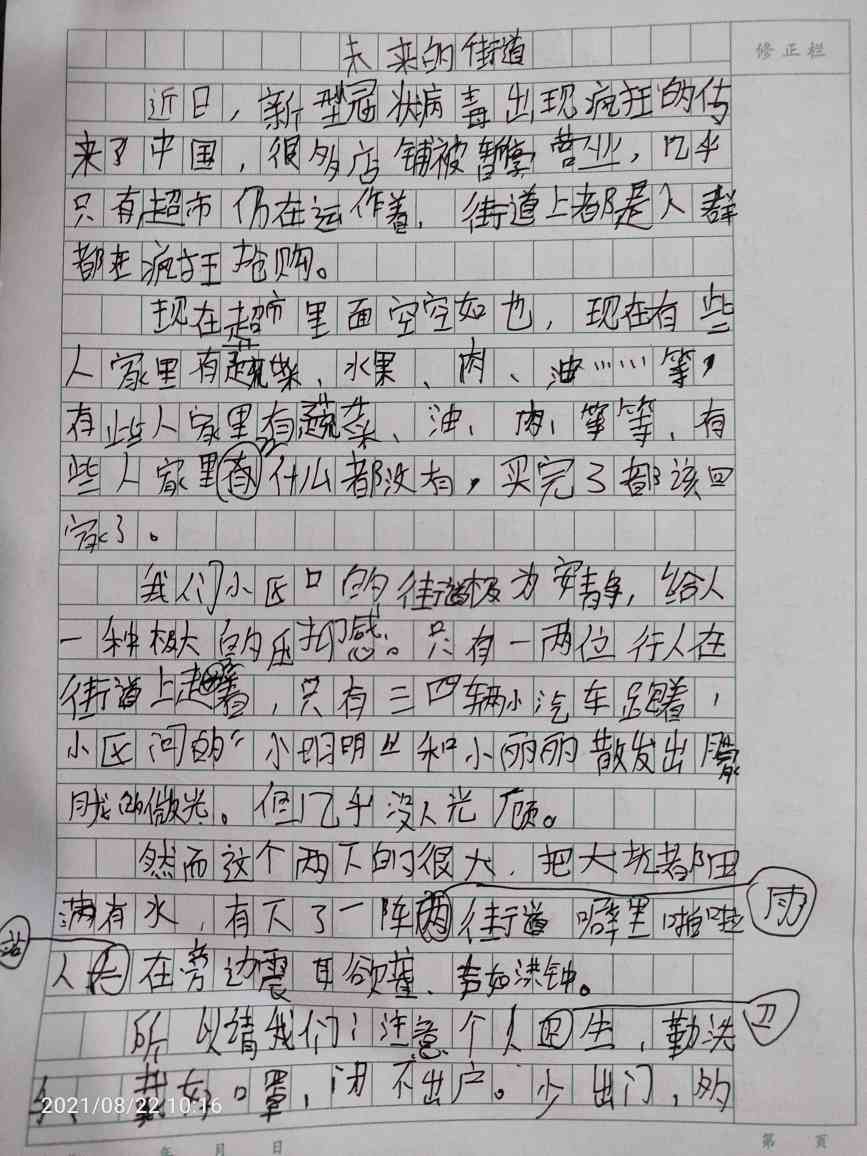 修正栏
未来的街道
近日,新型冠状病毒出现疯狂的传
来了中国,很多店铺被暂停营业,几乎
只有超市仍在运作着,街道上都是人群
都在疯狂抢购。
现在超市里面空空如也,现在有些
人家里有蔬菜、水果、肉、油……等,
有些人家里有蔬菜、油、肉、等等,有
些人家里有什么都没有,买完了都该回
家了。
我们小区口的街道极为安静,给人
一种极大的压抑感。只有一两位行人在
街道上走着,只有三四辆小汽车跑着,
小区问的“小明明”和小丽丽散发出朦
胧的微光。但几乎没人光顾。
然而这个两下的很大,把大坑都
满有水,有下了一阵雨街道噼里啪啦
人站在旁边震耳欲聋、声如洪钟。
所以请我们注意个人卫生,勤洗
戴好口罩,闭不出户。少出门,的
2021/08/22 10:16
年 月 日
第 页